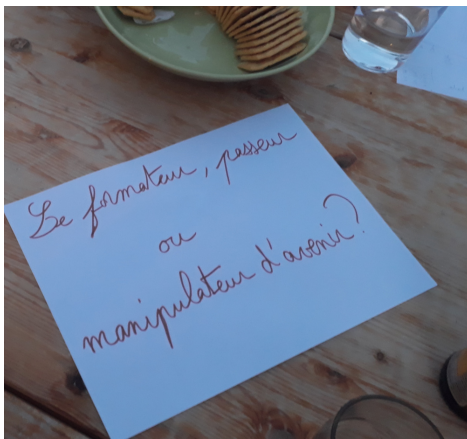 Le formateur, passeur
ou
manipulateur d'avenir?